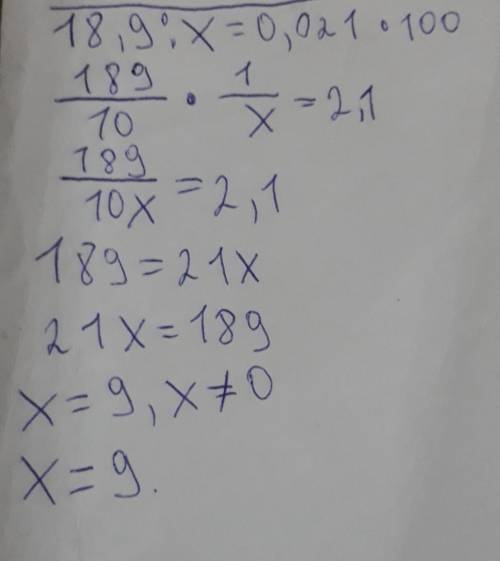 18,9 : x = 0,021 · 100
189/10 · 1/x = 2,1
189/10x = 2,1
189 = 21x
21x = 189
x = 9, x ≠ 0
x = 9.